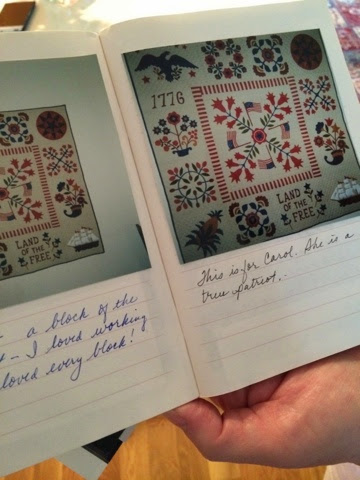 LAND
OF THE
FREE
a block of the
I loved working
loved every block!
1776
LAND
OF THE
FREE
This is for Carol. She is a
true patriot.